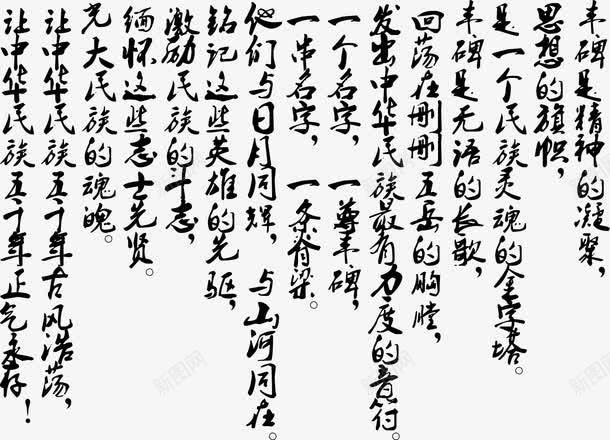 丰碑是精神的凝聚，
思想的旗帜，
是一个民族灵魂的金字塔。
丰碑是无语的长歌，
回荡在删删五岳的胸膛，
发出中华民族最有力度的音符。
一个名字，一尊丰碑，
一串名字，一条脊梁。
他们与日月同辉，与山河同在。
铭记这些英雄的先驱，
激励民族的斗志，
缅怀这些志士先贤。
光大民族的魂魄。
让中华民族五千年古风浩荡，
让中华民族五千年正气永存！
新图网